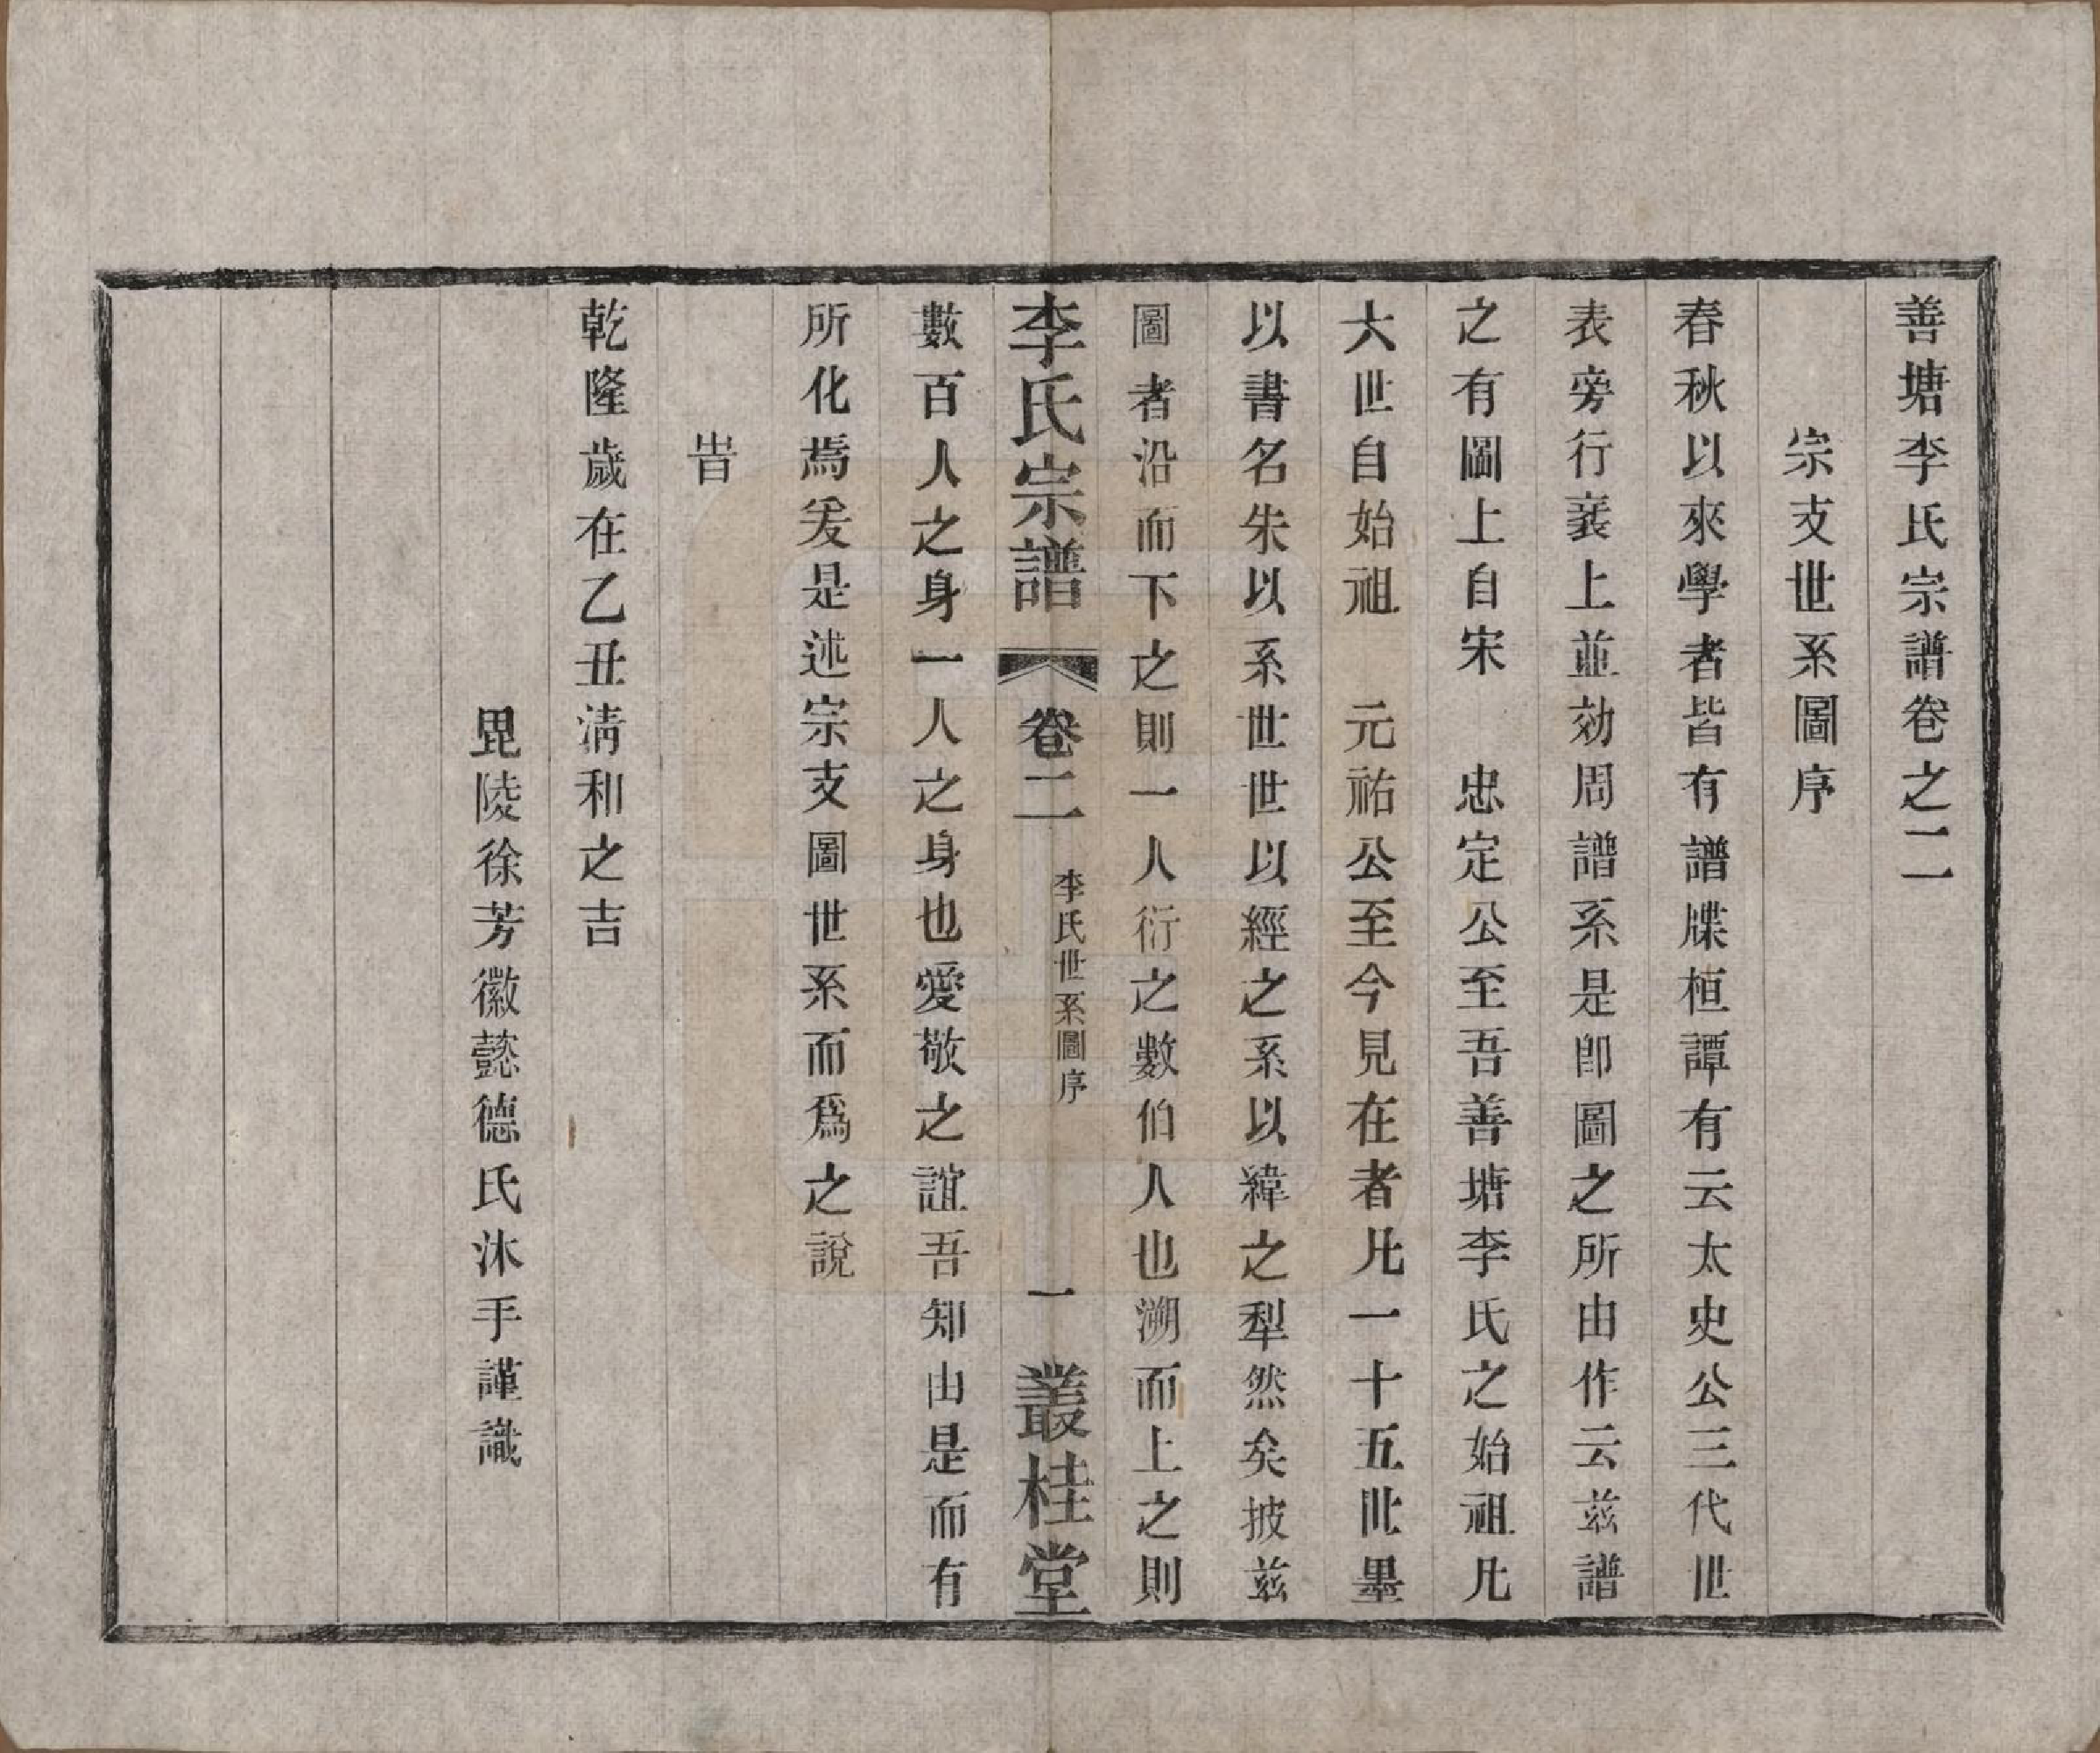 善塘李氏宗譜卷之二
宗支世系圖序
春秋以來學者皆有譜牒桓譚有云太史公三代世
表旁行裘上並効周譜系是卽圖之所由作云茲譜
之有圖上自宋　忠定公至吾善塘李氏之始祖凡
大世自始祖　元祐公至今見在者凡一十五世墨
以書名朱以系世世以經之系以緯之犁然矣披茲
圖者沿而下之則一人衍之數伯人也溯而上之則
李氏宗譜　卷二　李氏世系圖序　一　叢桂堂
數百人之身一人之身也愛敬之誼吾知由是而有
所化焉爰是述宗支圖世系而爲之說
旹
乾隆歲在乙丑淸和之吉
毘陵徐芳徽懿德氏沐手謹識